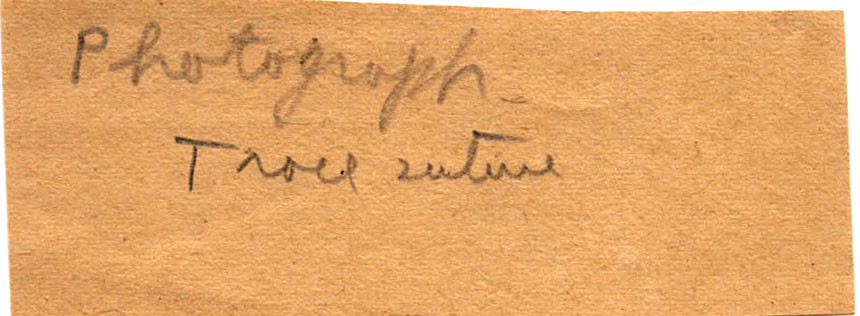 Photograph
Trace suture